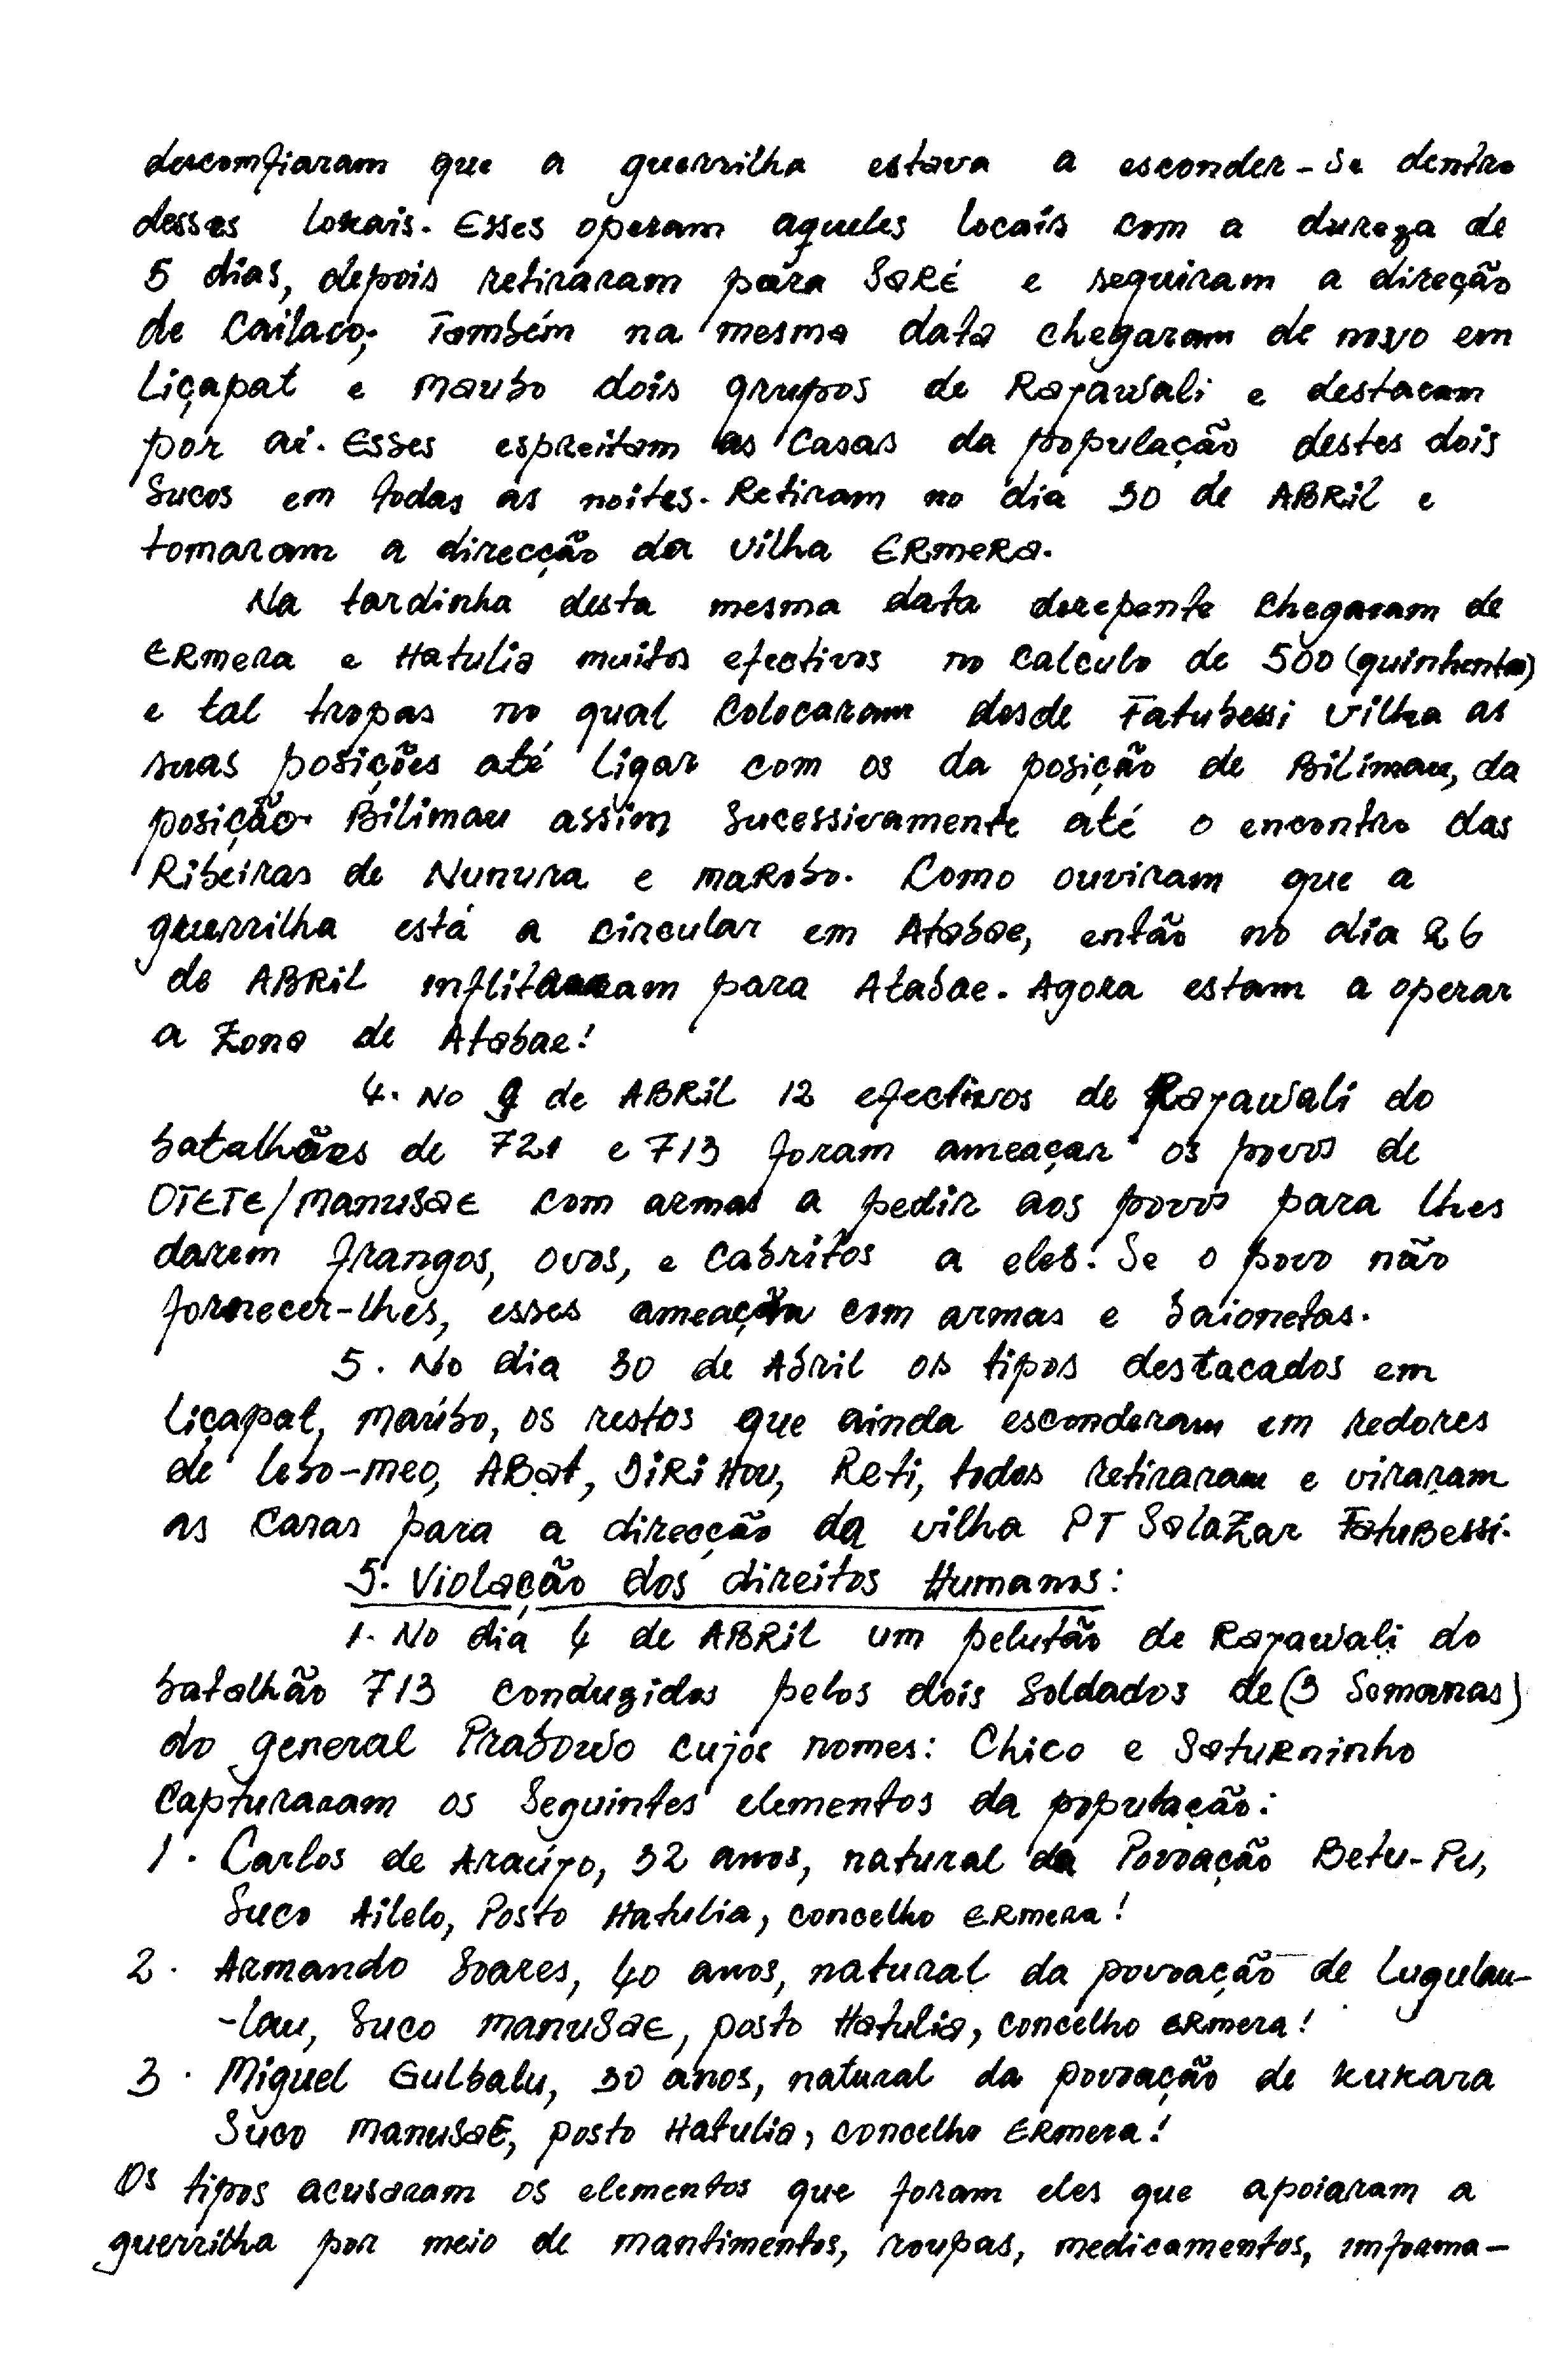 desconfiaram que a guerrilha estava a esconder-se dentro
desses lokais. Esses operam aqueles locais com a dureza de
5 dias, depois retiraram para SARÉ e seguiram a direção
de Cailaco; Também na mesma data chegaram de novo em
Liçapat e Maubo dois grupos de Rajawali e destacam
por ai. Esses espreitam as casas da população destes dois
Sucos em todas as noites. Retiram no dia 30 de ABRIL e
tomaram a direcção da vilha ERMERA.
Na tardinha desta mesma data derepente chegaram de
ERmera e Hatulia muitos efectivos no calculo de 500 (quinhentos)
e tal tropas no qual colocaram desde Fatubessi vilha as
suas posições até ligar com os da posição de Bilimau, da
posição Bilimau assim sucessivamente até o encontro das
Ribeiras de Nunura e maRobo. Como ouviram que a
guerrilha está a circular em Atabae, então no dia 26
de ABRIL inflitraram para Atabae. Agora estam a operar
a Zona de Atabae!
4. No 9 de ABRIL 12 efectivos de Rajawali do
batalhões de 721 e 713 foram ameaçar os povos de
OTETE/MANUSAE com armas a pedir aos povos para lhes
darem frangos, ovos, e cabritos a eles. Se o povo não
fornecer-lhes, esses ameaça com armas e baionetas.
5. No dia 30 de Abril os tipos destacados em
Liçapat, Maúbo, os restos que ainda esconderam em redores
de lebo-meo, ABat, DiRi Hou, Reti, todos retiraram e viraram
as caras para a direcção da vilha PT SALAZAR FatuBessi.
5. Violação dos direitos Humanos:
1. No dia 4 de ABRIL um pelutão de Rajawali do
batalhão 713 conduzidos pelos dois Soldados de (3 Semanas)
do general Prabowo cujos nomes: Chico e Saturninho
capturaram os Seguintes elementos da população:
1. Carlos de Araújo, 32 anos, natural da Povoação Betu-Pu,
Suco Ailelo, Posto Hatulia, concelho ERmera!
2. Armando Soares, 40 anos, natural da povoação de Lugulau-
-lau, Suco MANUSAE, posto Hatulia, concelho ERmera!
3. Miguel Gulbalu, 30 anos, natural da povoação de Kukara
Suco MANUSAE, posto Hatulia, concelho ERmera!
Os tipos acusaram os elementos que foram eles que apoiaram a
guerrilha por meio de mantimentos, roupas, medicamentos, informa-